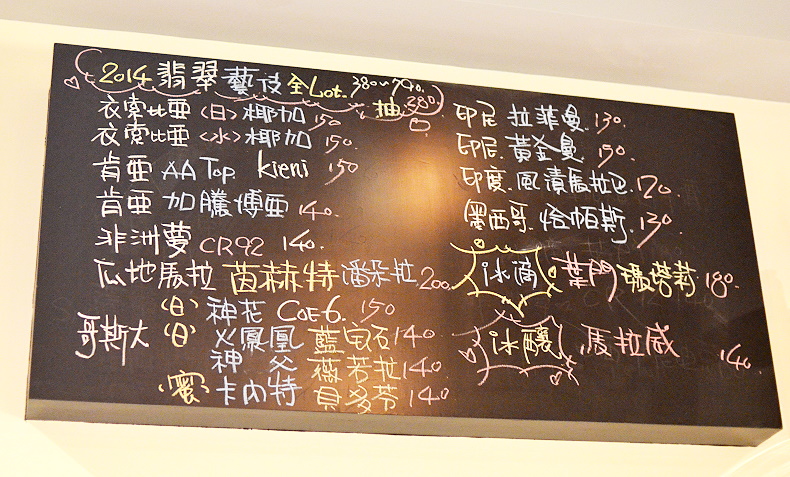 2014 翡翠藝伎 全Lot. 380~790.
抽 380
衣索比亞 (日) 椰加 150
衣索比亞 <水> 椰加 150
肯亞 AA Top kieni 150
肯亞 加騰博亞 140.
非洲夢 CR92 140.
瓜地馬拉 茵赫特 潘朵拉 200
(日) 神花 COE-6. 150
哥斯大 (日) 火鳳凰 藍宝石 140
神父 薇芳拉 140
蜜 卡內特 貝多芬 140
印尼 拉菲曼 130.
印尼 黃金曼 150.
印度 風漬馬拉巴 120
墨西哥 恰帕斯 130.
冰滴 葉門 瑪塔莉 180
冰釀 馬拉威 140